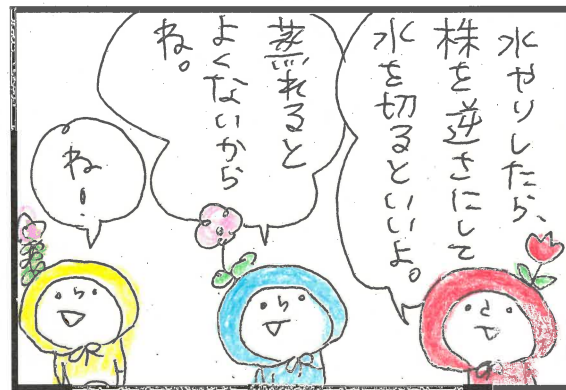 水やりしたら、
株を逆さにして
水を切るといいよ。
蒸れると
よくないから
ね。
ね!